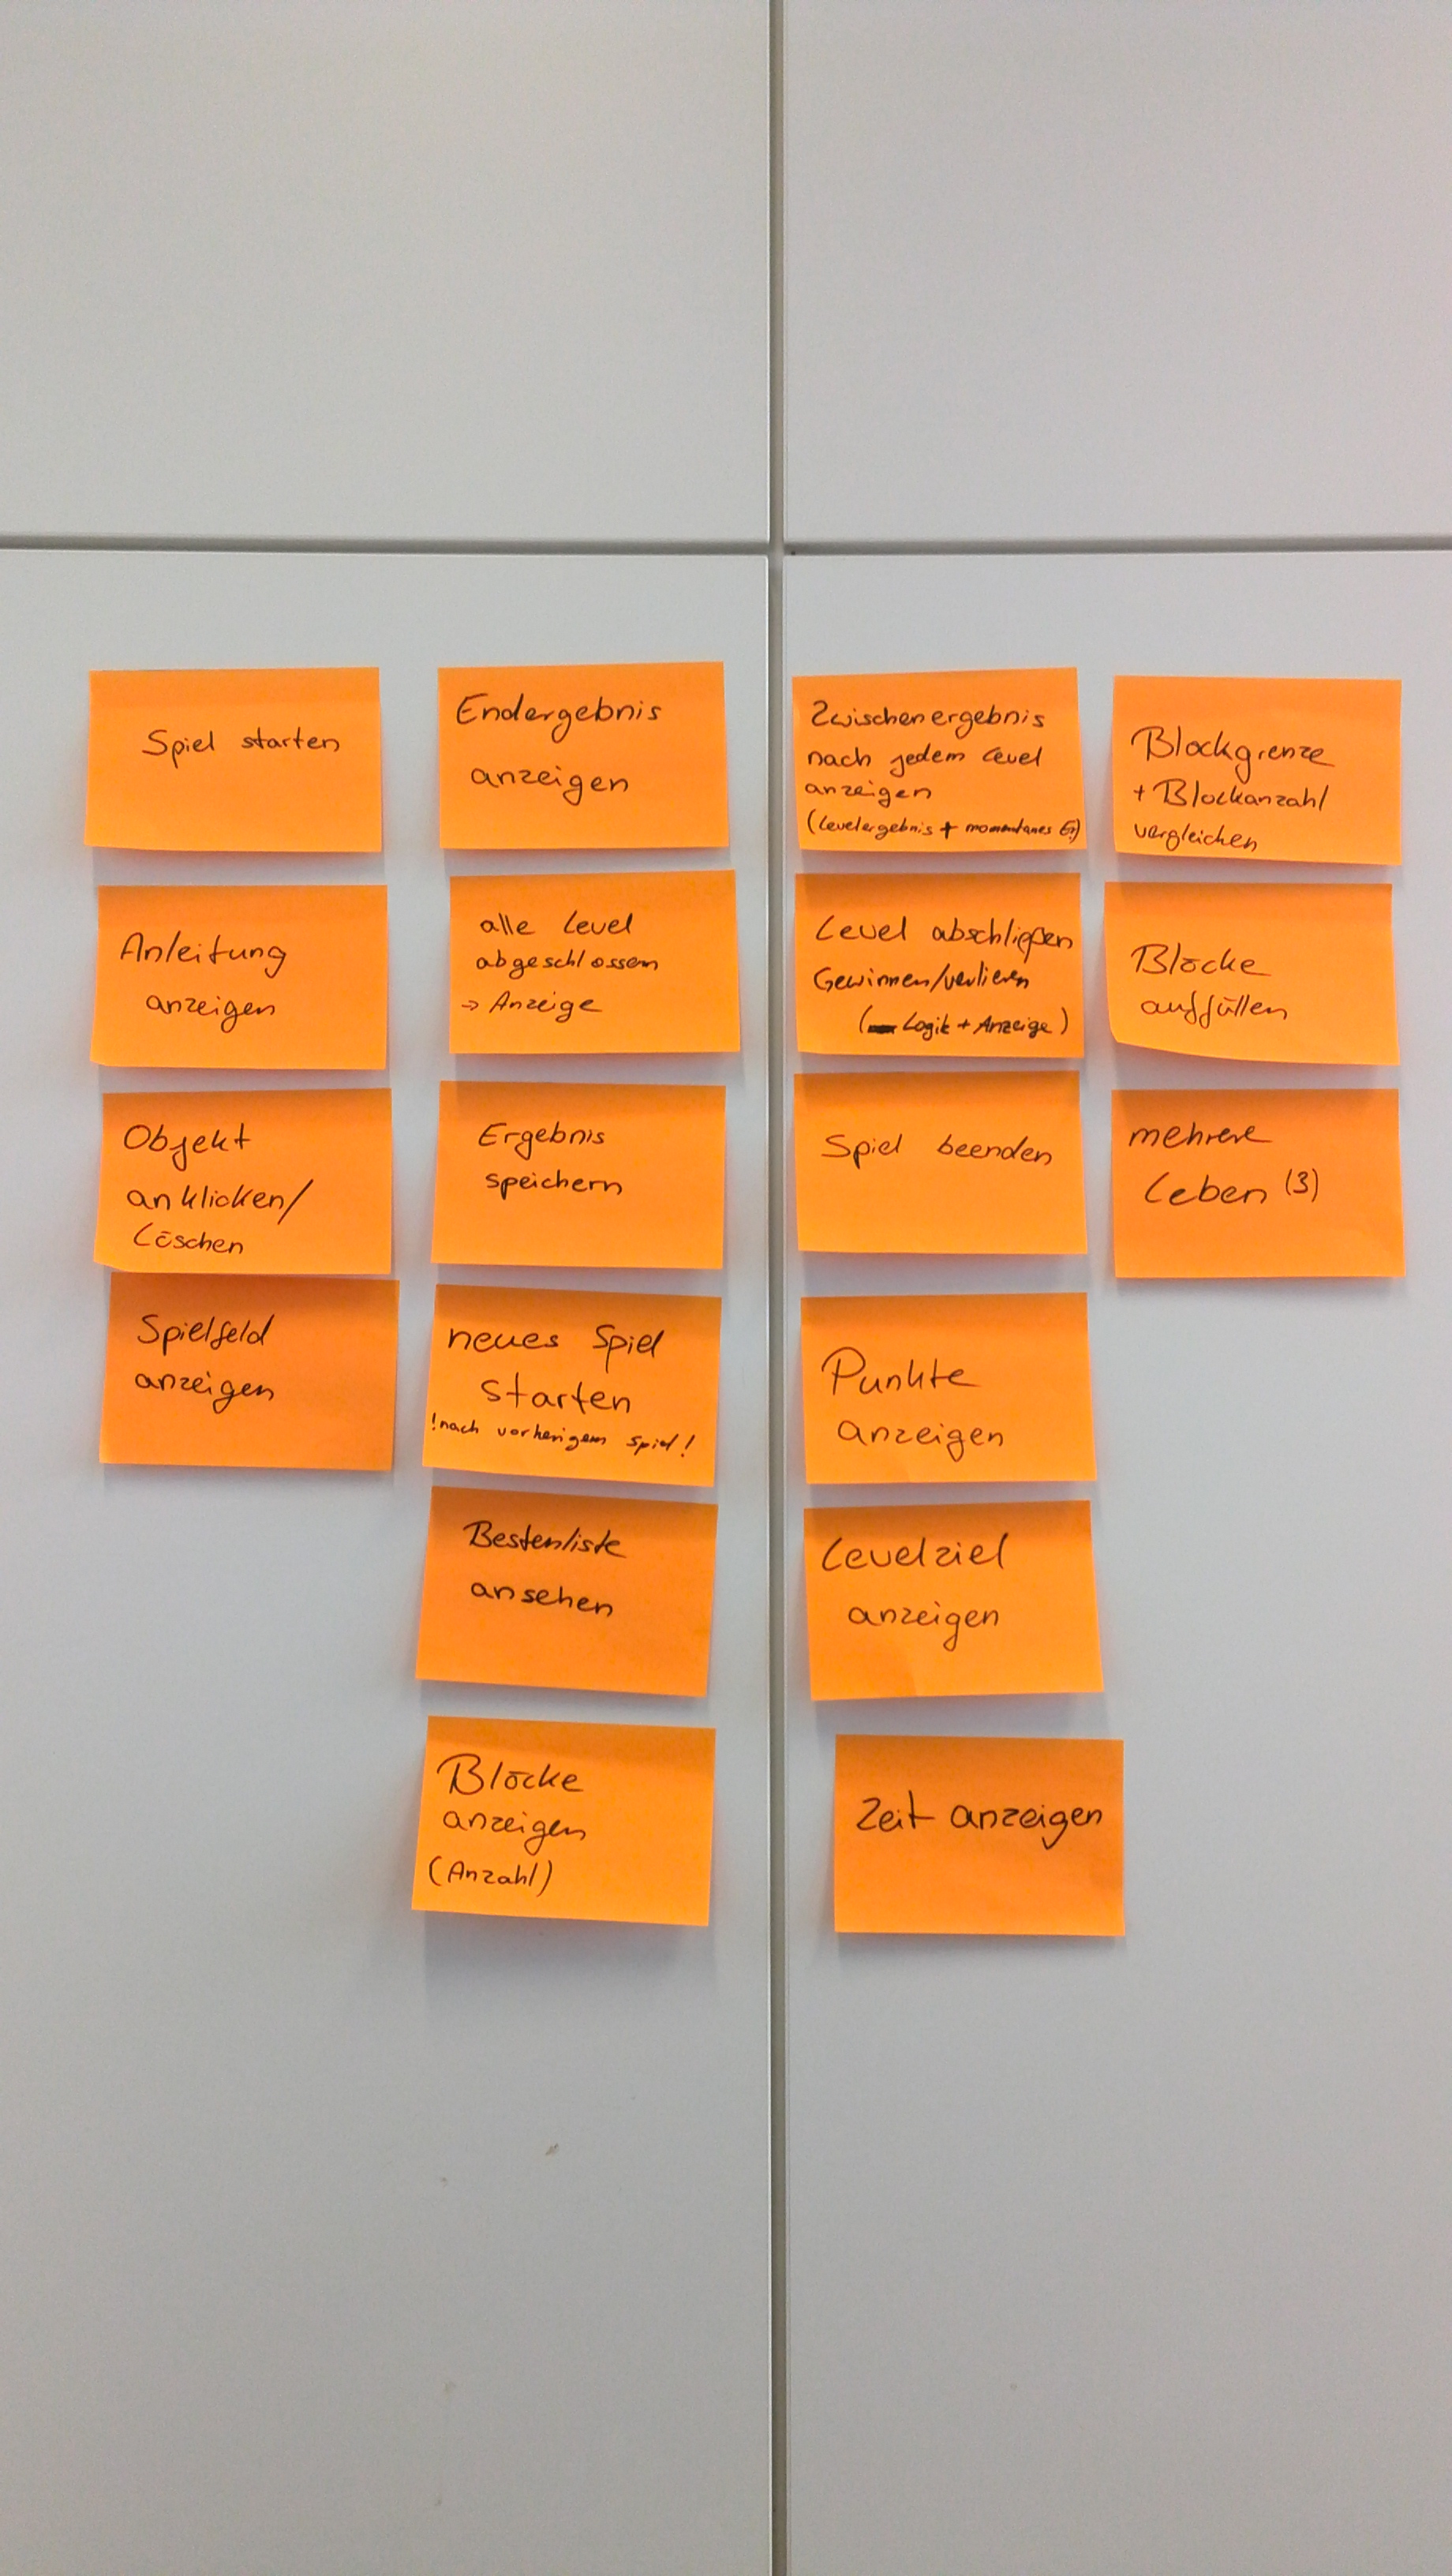 Spiel starten
Anleitung
anzeigen
Objekt
anklicken/
Löschen
Spielfeld
anzeigen
Endergebnis
anzeigen
alle Level
abgeschlossen
→ Anzeige
Ergebnis
speichern
neues Spiel
starten
!nach vorherigem Spiel!
Bestenliste
ansehen
Blöcke
anzeigen
(Anzahl)
Zwischenergebnis
nach jedem Level
anzeigen
(Levelergebnis + momentanes E.)
Level abschließen
Gewinnen/verlieren
(Logik + Anzeige)
Spiel beenden
Punkte
anzeigen
Levelziel
anzeigen
Zeit anzeigen
Blockgrenze
+ Blockanzahl
vergleichen
Blöcke
auffüllen
mehrere
Leben (3)